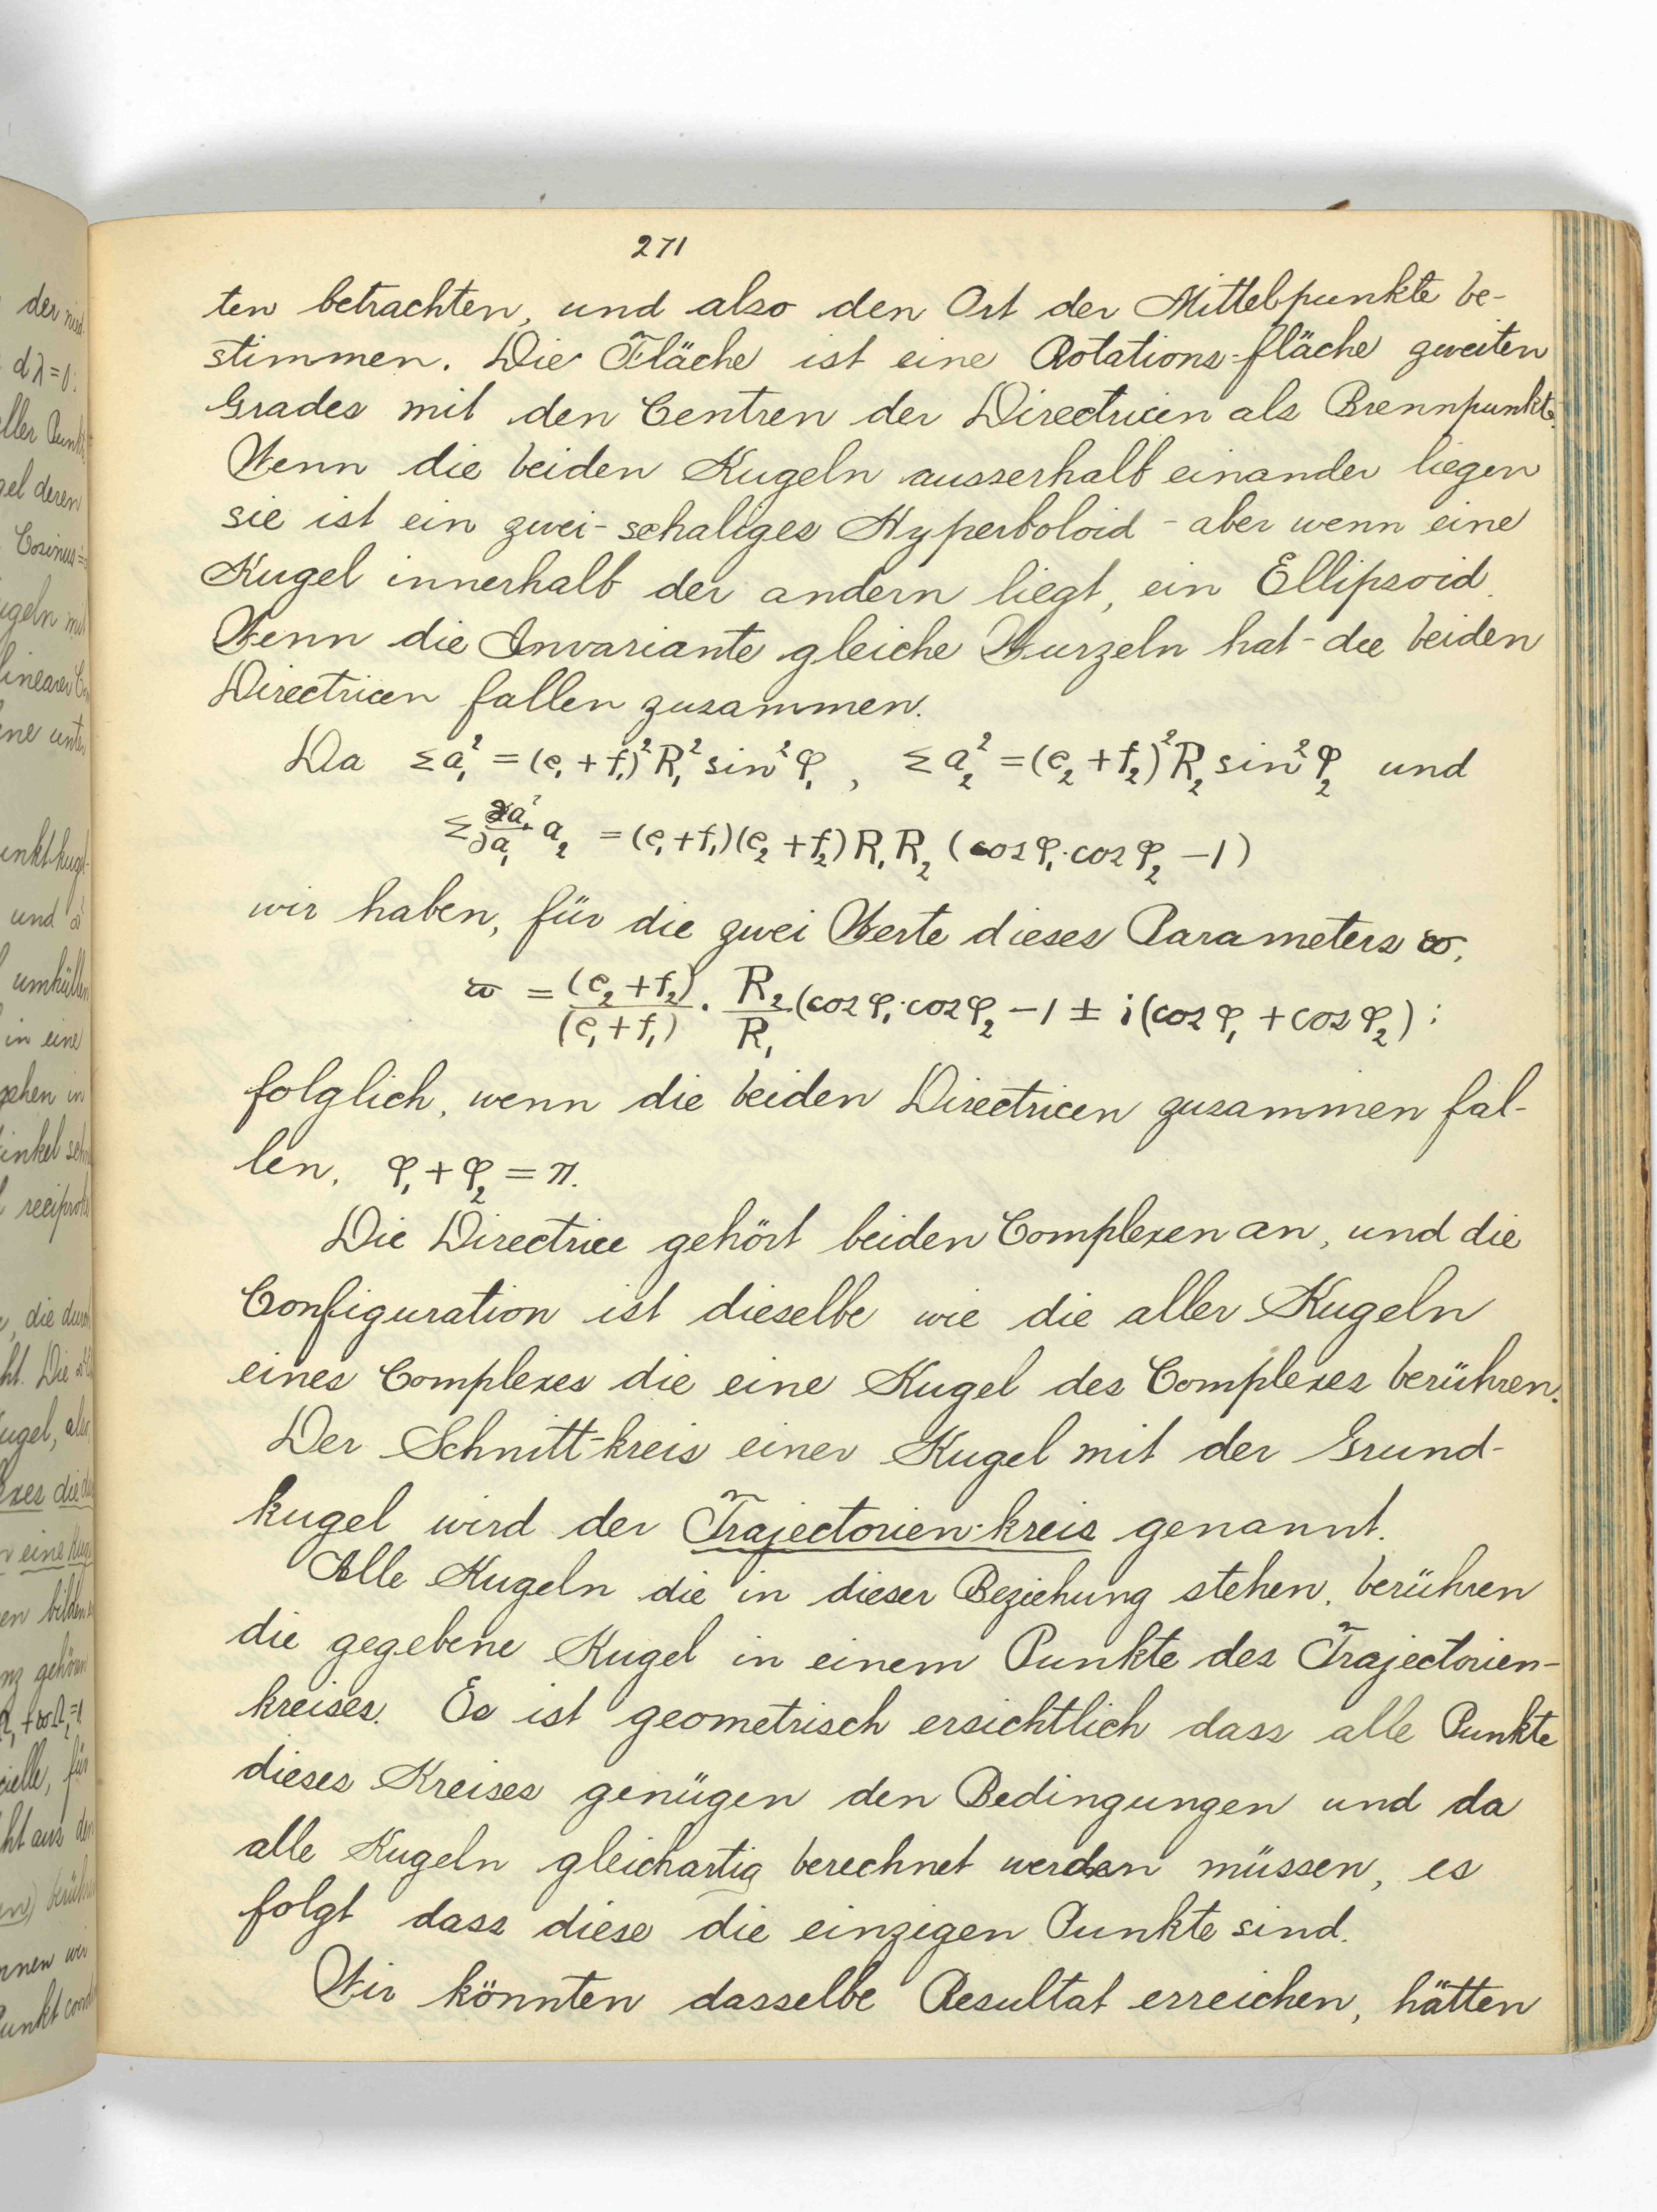 271
ten betrachten, und also den Ort der Mittelpunkte be-
stimmen. Die Fläche ist eine Rotations-fläche zweiten
Grades mit den Centren der Directricen als Brennpunkte.
Wenn die beiden Kugeln ausserhalb einander liegen
sie ist ein zwei-schaliges Hyperboloid - aber wenn eine
Kugel innerhalb der andern liegt, ein Ellipsoid.
Wenn die Invariante gleiche Wurzeln hat - die beiden
Directricen fallen zusammen.
Da Σa₁² = (e₁+f₁)²R₁² sin²φ₁, Σa₂² = (e₂+f₂)²R₂² sin²φ₂ und
Σ ∂a₁²/∂a₁ a₂ = (e₁+f₁)(e₂+f₂)R₁R₂ (cosφ₁·cosφ₂ −1)
wir haben, für die zwei Werte dieses Parameters ϖ,
ϖ = (e₂+f₂)/(e₁+f₁) · R₂/R₁ (cosφ₁·cosφ₂ −1 ± i(cosφ₁ + cosφ₂) ;
folglich, wenn die beiden Directricen zusammen fal-
len, φ₁+φ₂ = π.
Die Directrice gehört beiden Complexen an, und die
Configuration ist dieselbe wie die aller Kugeln
eines Complexes die eine Kugel des Complexes berühren.
Der Schnitt-kreis einer Kugel mit der Grund-
kugel wird der Trajectorien-kreis genannt.
Alle Kugeln die in dieser Beziehung stehen, berühren
die gegebene Kugel in einem Punkte des Trajectorien-
kreises. Es ist geometrisch ersichtlich dass alle Punkte
dieses Kreises genügen den Bedingungen und da
alle Kugeln gleichartig berechnet werden müssen, es
folgt dass diese die einzigen Punkte sind.
Wir könnten dasselbe Resultat erreichen, hätten